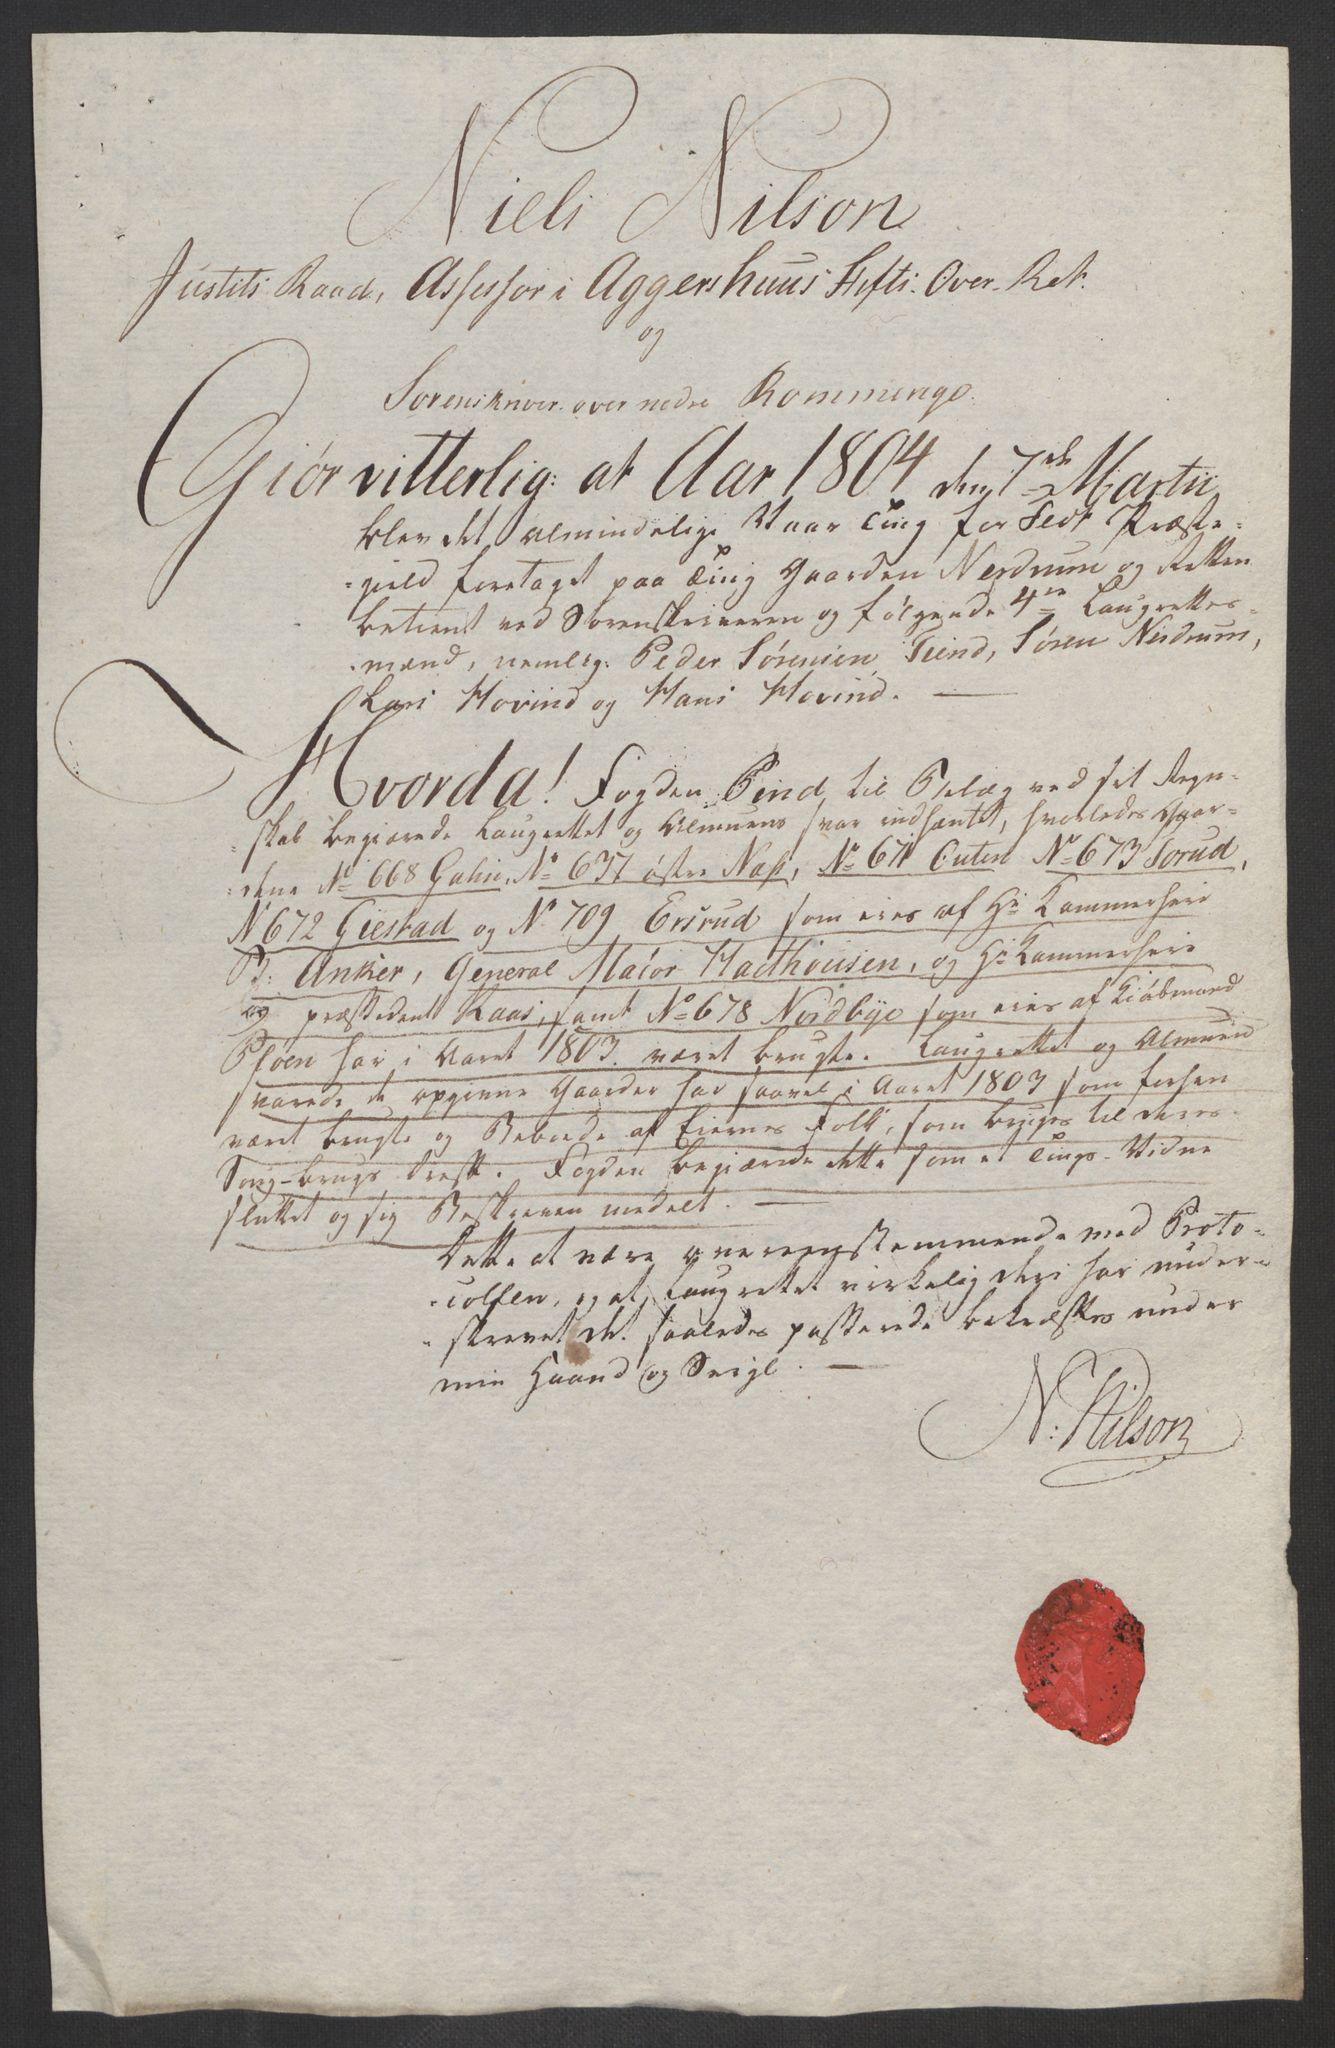 Niels Nilson
Justits Raad, Assessor i Aggershuus Stifts. Over-Ret.
og
Sorenskriver over nedre Rommerige.
Giör vitterlig: at Aar 1804 den 7de Martii
blev det almindelige Vaar Ting for Fedt Præste-
-gield foretaget paa Ting Gaarden Nerdrum og Retten
betient ved Sorenskriveren og følgende 4re Laugrettes-
-mænd, nemlig: Peder Sörensen Teind, Sören Nerdrum,
Lars Hovind og Hans Hovind. —
Hvorda! Fogden Bind til Belæg ved sit Regn-
-skab begiærede Laugrettet og Almuens svar indhæntet, hvorledes Gaar-
-dene No 668 Galsie, No 637 østre Nas, No 671 Outen No 673 Sorud,
No 672 Giestad og No 709 Ersrud som eies af Hr Kammerherre
B: Anker, General Maior Hadthousen, og Hr Kammerherre
og præsident Kaas, samt No 678 Nordbye som eies af Kiöbmand
Ploen har i Aaret 1803 været brugte. Laugrettet og Almuen
svarede de opgivne Gaarder har saavel i Aaret 1803 som forhen
været brugte og Beboede af Eiernes Folk, som bruges til deres
Saug-brugs drift. Fogden begiærede dette som et Tings-Vidne
sluttet og sig Beskreven meddelt. —
Dette at være overeenstemmende med Proto-
-collen, og at Laugrettet virkelig deri har under-
-skrevet det saaledes passerede bekræftes under
min Haand og Seigl. —
N: Nilson